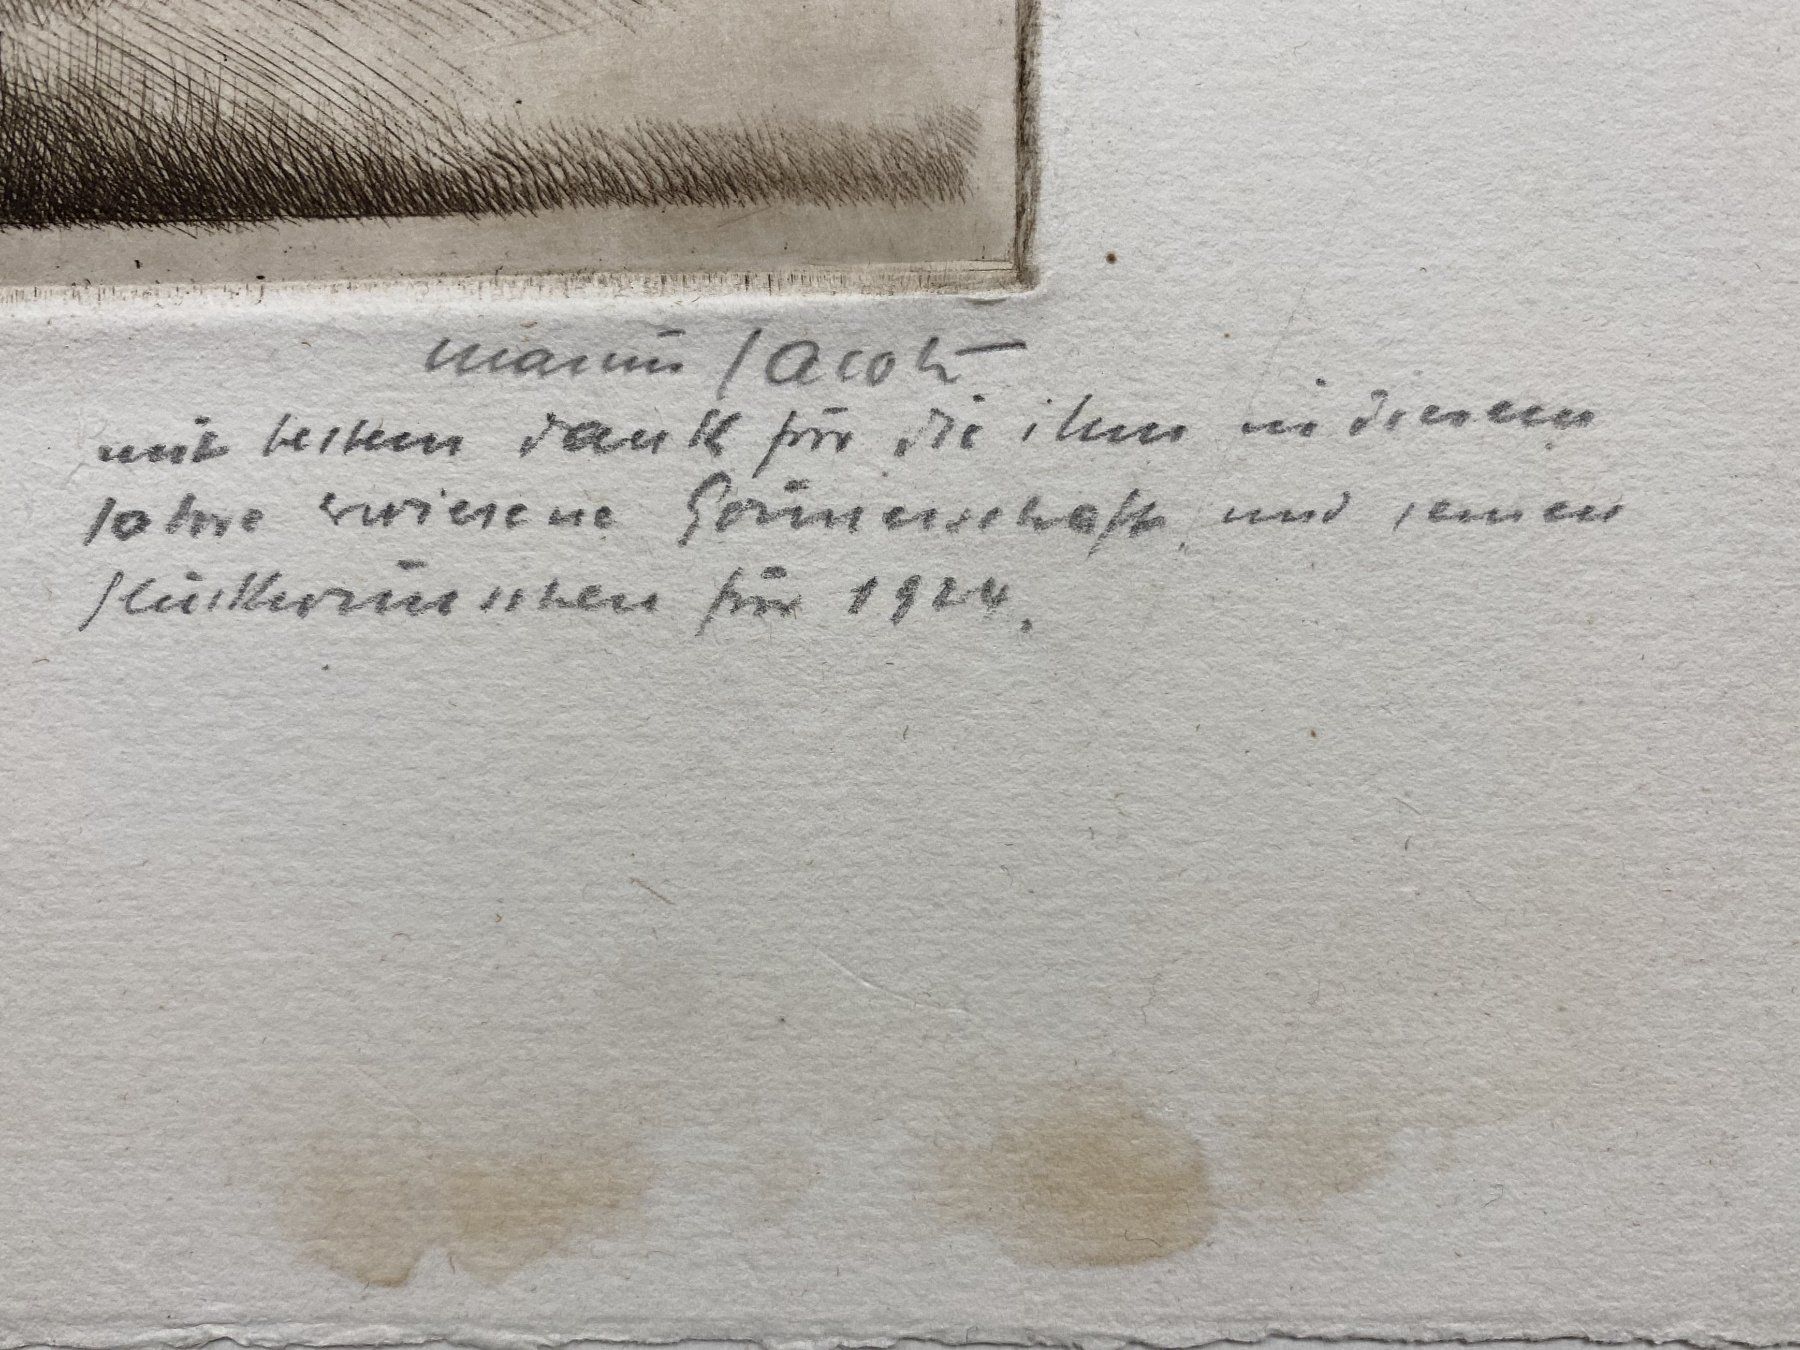 Marius Jacob
mit besten dank für die ihm in diesem
Jahre erwiesene Gönnerschaft und seinen
Glückwünschen für 1924.